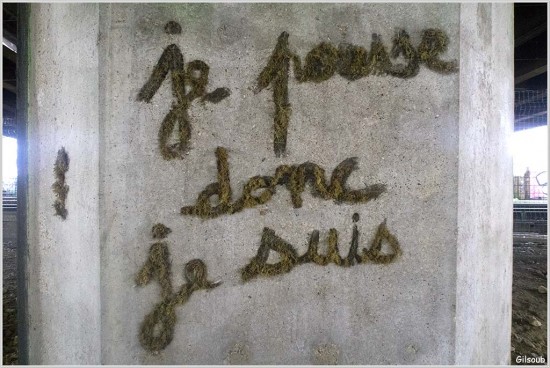 je pousse
donc
je suis
Gilsoub